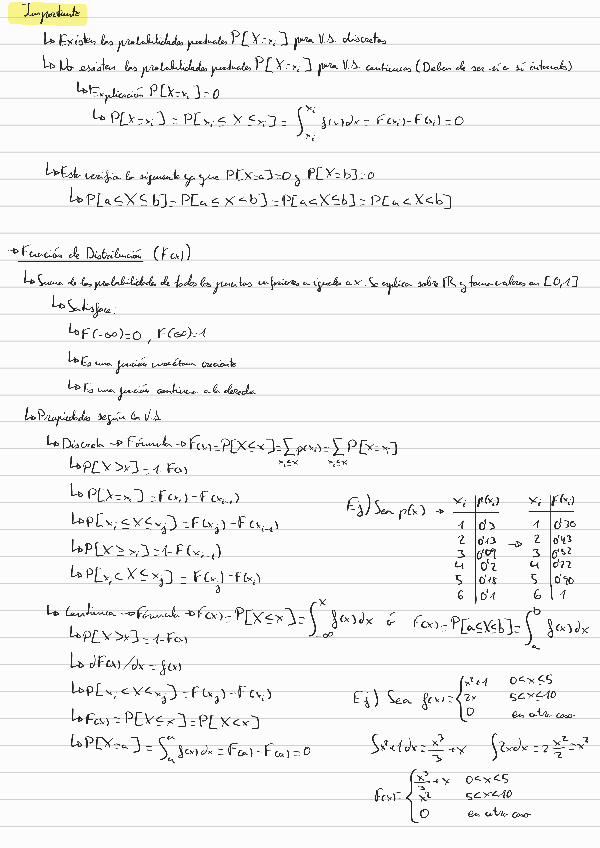 Importante
↳ Existen las probabilidades puntuales P[X=xi] para V.S. discretas
↳ No existen las probabilidades puntuales P[X=xi] para V.S. continuas (Deben de ser sí o sí intervalos)
↳ Explicación P[X=xi]=0
↳ P[X=xi] = P[xi ≤ X ≤ xi] = ∫_{xi}^{xi} f(x)dx = F(xi)-F(xi) = 0
↳ Esto verifica lo siguiente ya que P[X=a]=0 y P[X=b]=0
↳ P[a≤X≤b] = P[a≤X<b] = P[a<X≤b] = P[a<X<b]
→ Función de Distribución (F(x))
↳ Suma de las probabilidades de todos los puntos inferiores o iguales a x. Se aplica sobre ℝ y toma valores en [0,1]
↳ Satisface:
↳ F(-∞)=0, F(∞)=1
↳ Es una función monótona creciente
↳ Es una función continua a la derecha
↳ Propiedades según la V.S
↳ Discreta → Fórmula → F(x)=P[X≤x]=∑_{xi≤x} p(xi)=∑_{xi≤x} P[X=xi]
↳ P[X>x]=1-F(x)
↳ P[X=xi] = F(xi)-F(xi-1)
↳ P[xi≤X≤xj] = F(xj)-F(xi-1)
↳ P[X≥xi]=1-F(xi-1)
↳ P[xi<X≤xj] = F(xj)-F(xi)
Ej) Sea p(x) → xi | p(xi) xi | F(xi)
1 | 0'3 1 | 0'30
2 | 0'13 → 2 | 0'43
3 | 0'09 3 | 0'52
4 | 0'2 4 | 0'72
5 | 0'18 5 | 0'90
6 | 0'1 6 | 1
↳ Continua → Fórmula → F(x) = P[X≤x] = ∫_{-∞}^{x} f(x)dx ó F(x)=P[a≤X≤b]=∫_{a}^{b} f(x)dx
↳ P[X>x]=1-F(x)
↳ dF(x)/dx = f(x)
↳ P[xi<X<xj] = F(xj)-F(xi)
↳ F(x) = P[X≤x] = P[X<x]
↳ P[X=a] = ∫_{a}^{a} f(x)dx = F(a)-F(a) = 0
Ej) Sea f(x) = { x²+1 0<x≤5
2x 5<x≤10
0 en otro caso
∫x²+1dx = x³/3 + x ∫2xdx = 2 x²/2 = x²
F(x) = { x³/3 + x 0<x<5
x² 5<x<10
0 en otro caso